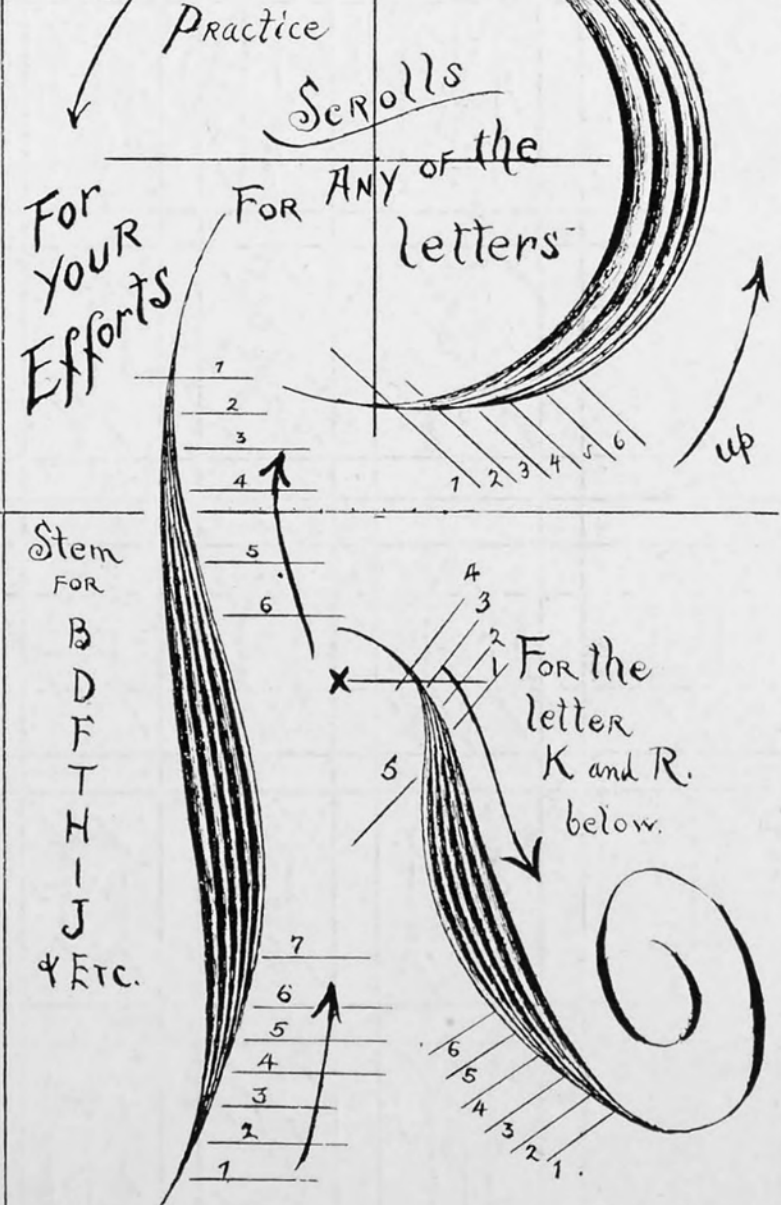 Practice
Scrolls
For Any of the
letters
For
your
Efforts
up
1
2
3
4
5
6
1 2 3 4 5 6
Stem
for
B
D
F
T
H
I
J
& Etc.
4
3
2
1
X
5
For the
letter
K and R.
below.
7
6
5
4
3
2
1
6
5
4
3
2
1.